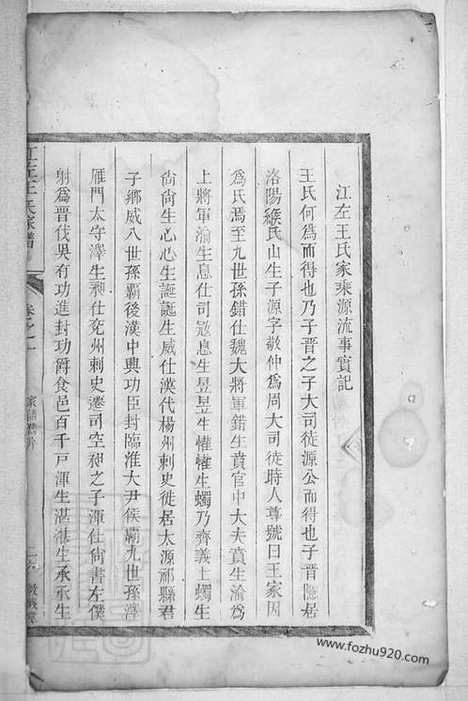 江左王氏家乘源流事實記
王氏何爲而得也乃子晋之子大司徒源公而得也子晋隱居
洛陽緱氏山生子源字敬仲爲周大司徒時人尊號曰王家因
爲氏焉至九世孫錯仕魏大將軍錯生賁官中大夫賁生渝爲
上將軍渝生息仕司寇息生昱昱生懽懽生蠋乃齊義上蠋生
尙尙生心心生誕誕生威仕漢代楊州刺史徙居太原祁縣君
子鄉威八世孫覇後漢中興功臣封臨淮大尹侯覇九世孫
雁門太守澤生昶仕兗州刺史遷司空昶之子渾仕尙書左僕
射爲晋伐吳有功進封功爵食邑百千戸渾生湛湛生承承生
江左王氏家譜
卷之一
www.fozhu920.com